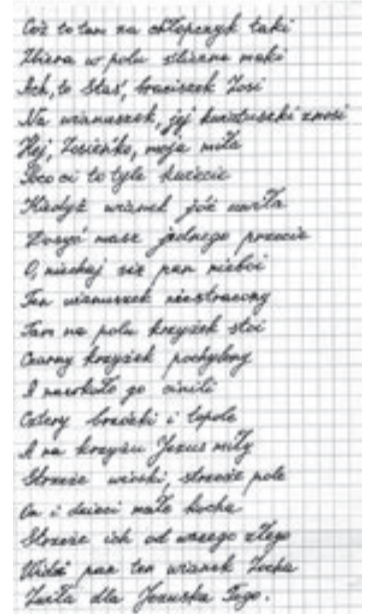 Cóż to tam za chłopczyk taki
Zbiera w polu śliczne maki
Ach, to Staś, braciszek Zosi
Na wianuszek, jej kwiatuszki znosi
Hej, Zosieńko, moja miła
Poco ci to tyle kwiecie
Kiedyż wianek już uwiła
Dosyć masz jednego przecie
O, niechaj się pan nieboi
Ten wianuszek niestracony
Tam na polu krzyżek stoi
Czarny krzyżek pochylony
A naokoło go
Cztery brzózki i topole
A na krzyżu Jezus miły
Strzeże wioski, strzeże pole
On i dzieci małe kocha
Strzeże ich od wszego złego
Widzi pan ten wianek Zocha
dla Jezuska Tego.